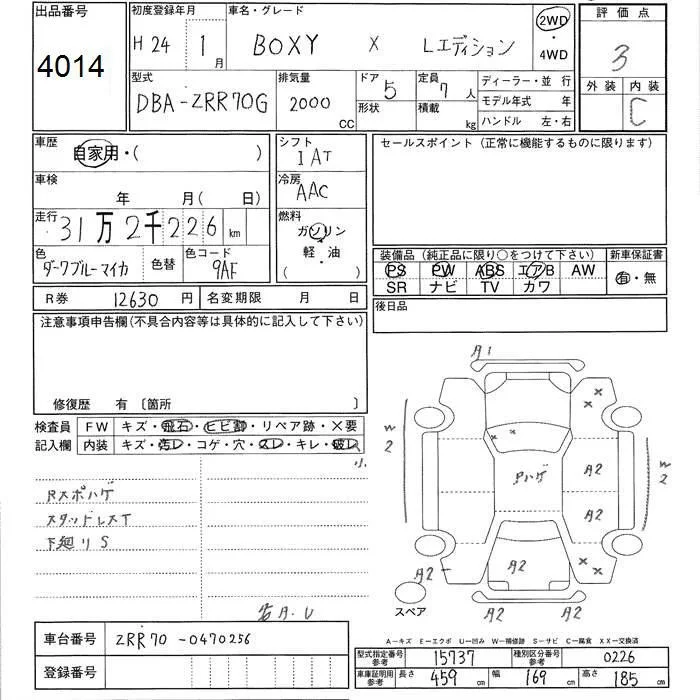 出品番号
4014
初度登録年月
H 24 1 月
車名・グレード
BOXY X Lエディション
2WD
・
4WD
評価点
3
外装 内装
C
型式
DBA-ZRR70G
排気量
2000 CC
ドア 5
形状
定員 7 人
積載 kg
ディーラー・並行
モデル年式 年
ハンドル 左・右
車歴
自家用・( )
シフト
IAT
セールスポイント(正常に機能するものに限ります)
車検
年 月( 日)
冷房
AAC
走行 31万2千226 km
燃料
ガソリン
軽・油
( )
色
ダークブルーマイカ
色替
色コード
9AF
装備品(純正品に限り○をつけて下さい)
新車保証書
PS PW ABS エアB AW
有・無
SR ナビ TV カワ
R券 12630 円
名変期限 月 日
後日品
注意事項申告欄(不具合内容等は具体的に記入して下さい)
修復歴 有 〔箇所 〕
検査員
記入欄
FW キズ・飛石・ヒビ割・リペア跡・×要
内装 キズ・汚レ・コゲ・穴・スレ・キレ・破レ
小
Rスポハゲ
スタッドレスT
下廻りS
若A.U
A1
W2
W2
Pハゲ
A2
A2
A2
A2
A2
A2
A2
スペア
A-キズ E-エクボ U-凹み W-補修跡 S-サビ C-腐食 XX-交換済
車台番号 ZRR70-0470256
登録番号
型式指定番号
参考
15737
種別区分番号
参考
0226
車庫証明用
参考
長さ 459 cm
幅 169 cm
高さ 185 cm